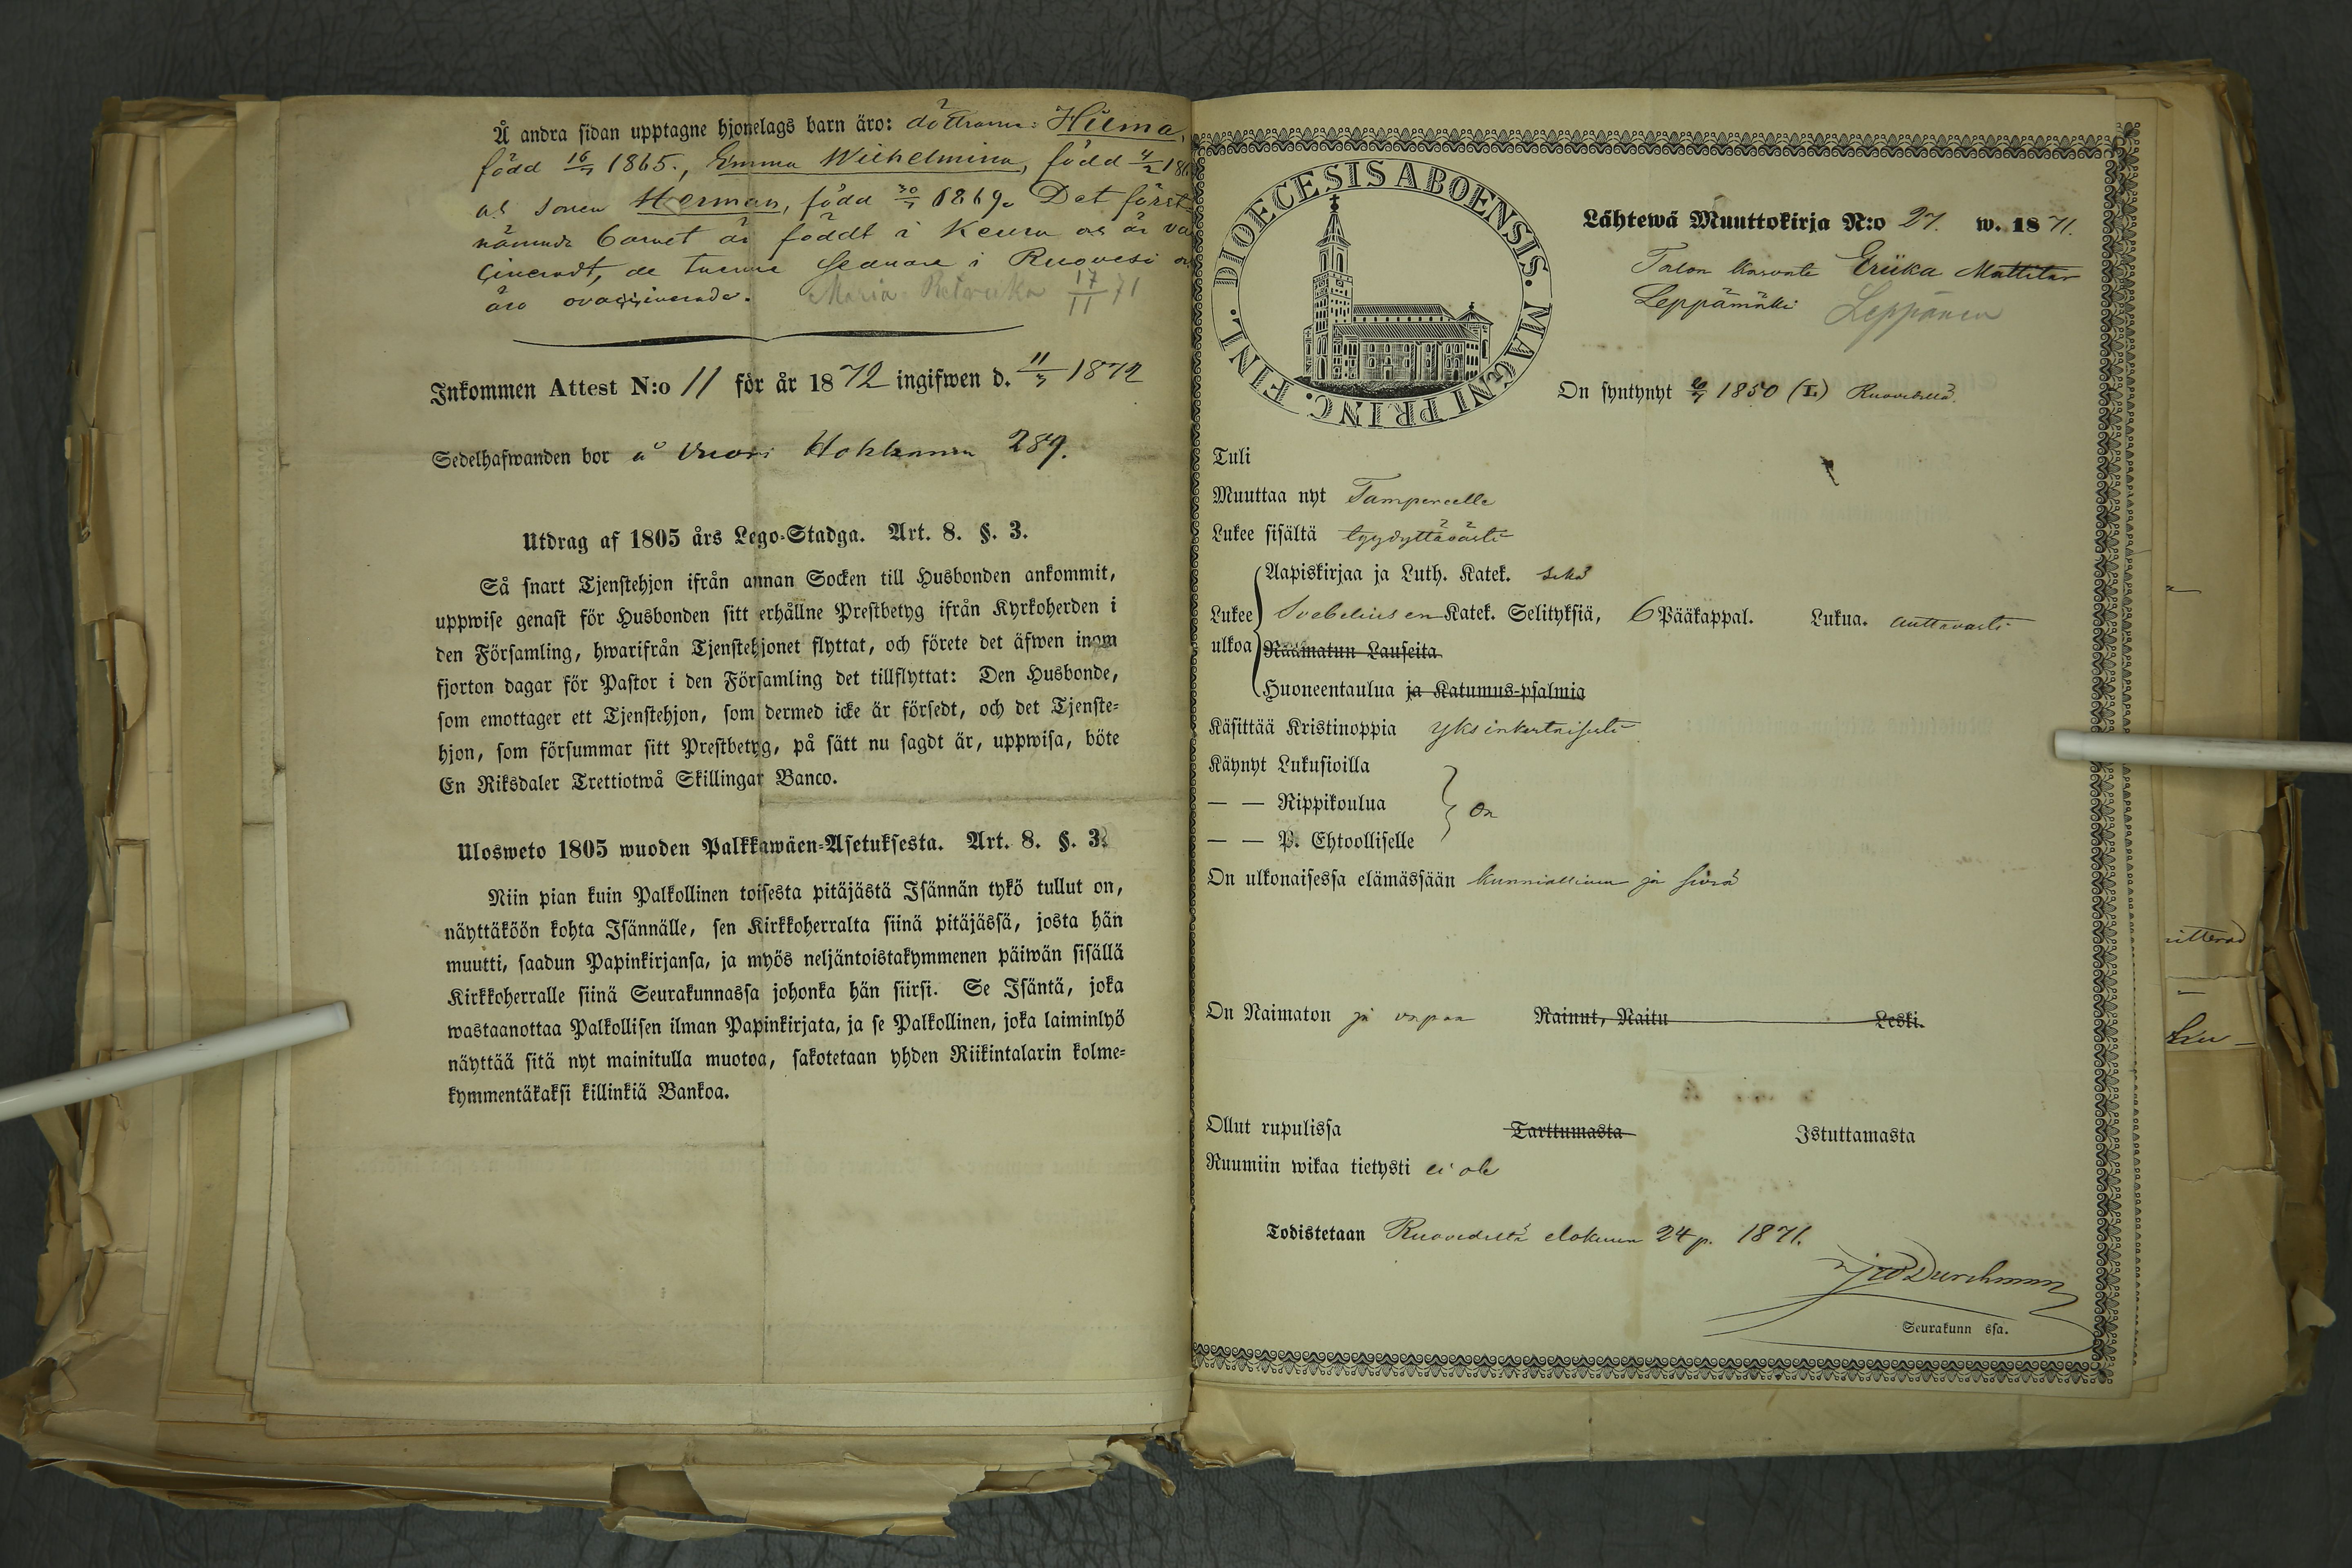 Å andra sidan upptagne hjonelags barn äro: döttrarne: Hilma,
född 16/7 1865., Emma Wilhelmina, född 4/2 186
och sonen Herman, född 30/7 1869. Det först
nämnda barnet är föddt i Keuru och är va
ccineradt, de tvenne sednare i Ruovesi och
äro ovaccinerade. Maria 17/11 71
Inkommen Attest N:o 11 för år 1872 ingifwen d. 11/3 1872
Sedelhafwanden bor å Vuori 289.
Utdrag af 1805 års Lego-Stadga. Art. 8. §. 3.
Så snart Tjenstehjon ifrån annan Socken till Husbonden ankommit,
uppwise genast för Husbonden sitt erhållne Prestbetyg ifrån Kyrkoherden i
den Församling, hwarifrån Tjenstehjonet flyttat, och förete det äfwen inom
fjorton dagar för Pastor i den Församling det tillflyttat: Den Husbonde,
som emottager ett Tjenstehjon, som dermed icke är försedt, och det Tjenste-
hjon, som försummar sitt Prestbetyg, på sätt nu sagdt är, uppwisa, böte
En Riksdaler Trettiotwå Skillingar Banco.
Ulosweto 1805 wuoden Palkkawäen-Asetuksesta. Art. 8. §. 3.
Niin pian kuin Palkollinen toisesta pitäjästä Isännän tykö tullut on,
näyttäköön kohta Isännälle, sen Kirkkoherralta siinä pitäjässä, josta hän
muutti, saadun Papinkirjansa, ja myös neljäntoistakymmenen päiwän sisällä
Kirkkoherralle siinä Seurakunnassa johonka hän siirsi. Se Isäntä, joka
wastaanottaa Palkollisen ilman Papinkirjata, ja se Palkollinen, joka laiminlyö
näyttää sitä nyt mainitulla muotoa, sakotetaan yhden Riikintalarin kolme-
kymmentäkaksi killinkiä Bankoa.
DIOECESIS ABOENSIS. MAGNI PRINC. FINL.
Lähtewä Muuttokirja N:o 27. w. 1871.
Talon kasvate Eriika Mattitar
Leppämäki Leppänen
On syntynyt 1850 (L.) Ruovedellä.
Tuli
Muuttaa nyt Tampereelle
Lukee sisältä tyydyttävästi
Aapiskirjaa ja Luth. Katek. sekä
Lukee Svebeliusen Katek. Selityksiä, 6 Pääkappal. Lukua. auttavasti
ulkoa Raamatun Lauseita
Huoneentaulua ja Katumus-psalmia
Käsittää Kristinoppia yksinkertaisesti
Käynyt Lukusioilla
— — Rippikoulua on
— — P. Ehtoolliselle
On ulkonaisessa elämässään kunniallinen ja siivo
On Naimaton ja vapaa Nainut, Naitu Leski.
Ollut rupulissa Tarttumasta Istuttamasta
Ruumiin wikaa tietysti ei ole
Todistetaan Ruovedeltä elokuun 24 p. 1871.
Durchman
Seurakunn ssa.